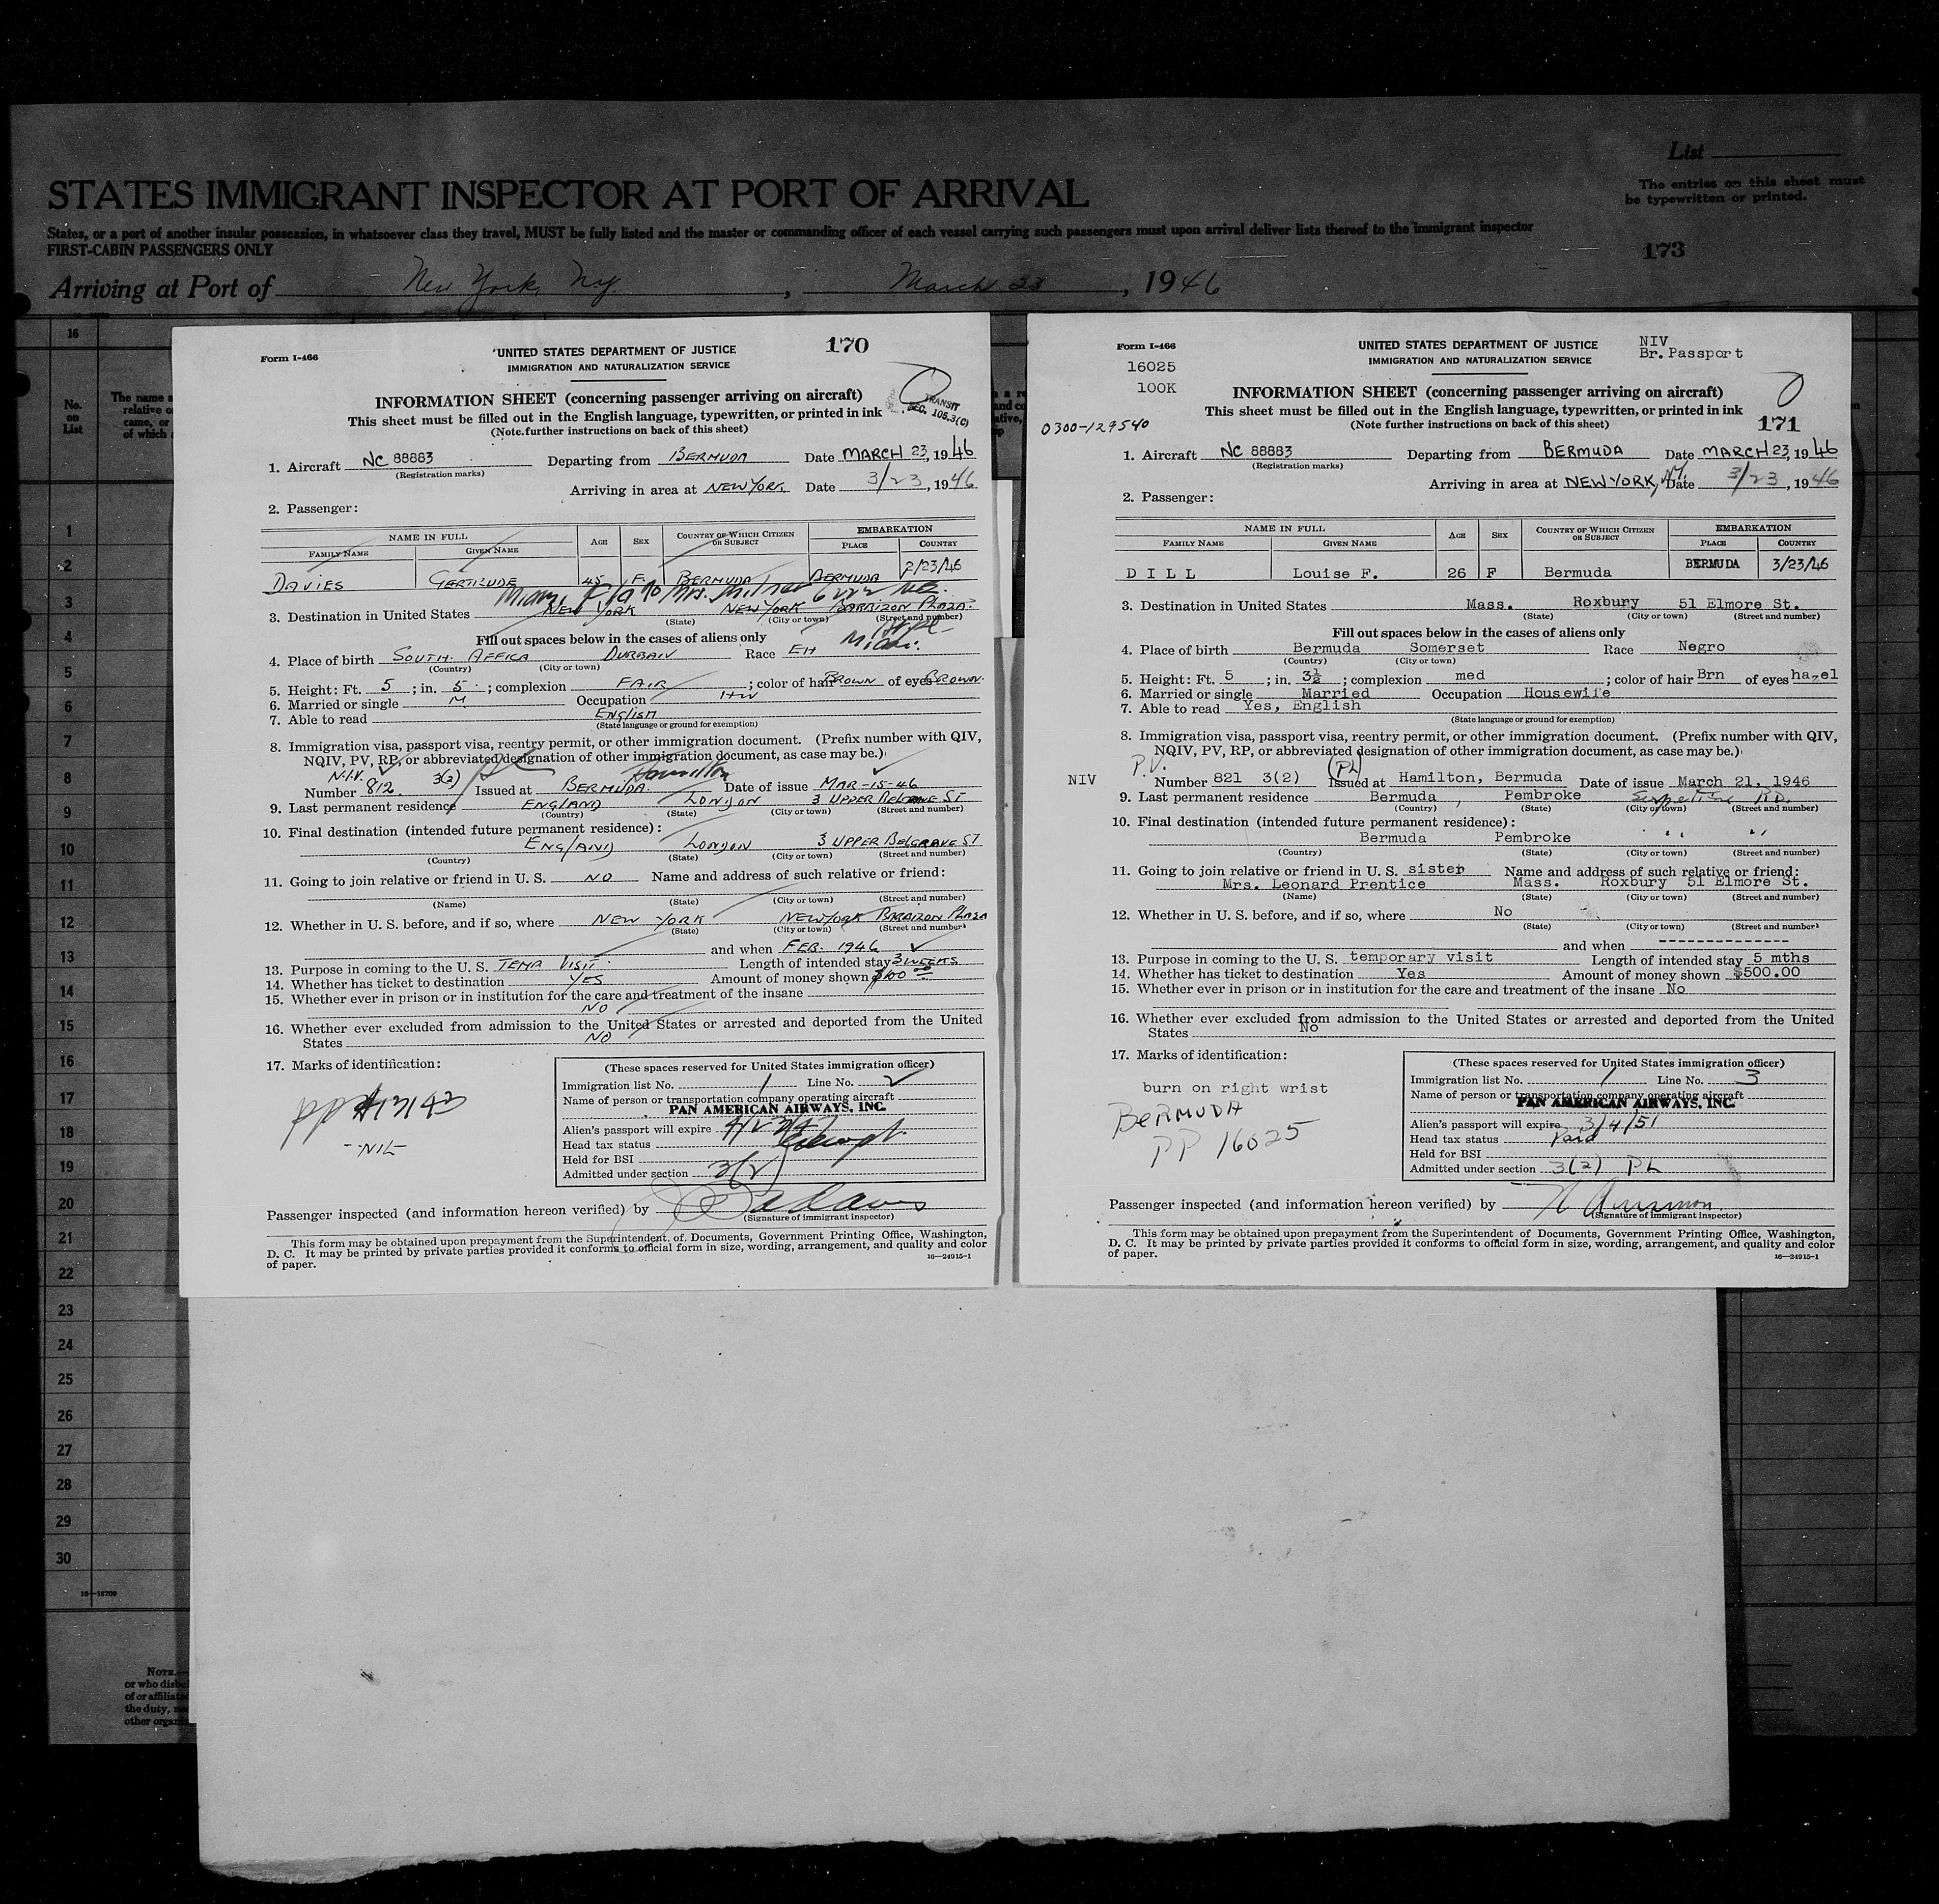 List
The entries on this sheet must
be typewritten or printed.
STATES IMMIGRANT INSPECTOR AT PORT OF ARRIVAL
States, or a port of another insular possession, in whatsoever class they travel, MUST be fully listed and the master or commanding officer of each vessel carrying such passengers must upon arrival deliver lists thereof to the immigrant inspector
FIRST-CABIN PASSENGERS ONLY
173
Arriving at Port of New York, NY, March 23, 1946
16
No.
on
List
The name a
relative o
came, or
of which
1
2
3
4
5
6
7
8
9
10
11
12
13
14
15
16
17
18
19
20
21
22
23
24
25
26
27
28
29
30
16—18709
NOTE.—
or who disbe
of or affiliate
the duty,
other organi
Form I-466
UNITED STATES DEPARTMENT OF JUSTICE
170
IMMIGRATION AND NATURALIZATION SERVICE
INFORMATION SHEET (concerning passenger arriving on aircraft)
TRANSIT
SEC. 105.3(C)
This sheet must be filled out in the English language, typewritten, or printed in ink
(Note further instructions on back of this sheet)
1. Aircraft NC 88883 Departing from BERMUDA Date MARCH 23, 1946
(Registration marks)
Arriving in area at NEW YORK Date 3/23, 1946
2. Passenger:
NAME IN FULL AGE SEX COUNTRY OF WHICH CITIZEN OR SUBJECT EMBARKATION
FAMILY NAME GIVEN NAME PLACE COUNTRY
DAVIES GERTRUDE 45 F. BERMUDA BERMUDA 2/23/46
Miami Fla to Mrs. Milner
3. Destination in United States NEW YORK NEW YORK BARBIZON PLAZA.
(State) (City or town) (Street and number)
Fill out spaces below in the cases of aliens only
Miami.
4. Place of birth SOUTH. AFFICA DURBAIN Race EH
(Country) (City or town)
5. Height: Ft. 5; in. 5; complexion FAIR; color of hair BROWN of eyes BROWN.
6. Married or single M Occupation HW
7. Able to read ENGLISH
(State language or ground for exemption)
8. Immigration visa, passport visa, reentry permit, or other immigration document. (Prefix number with QIV,
NQIV, PV, RP, or abbreviated designation of other immigration document, as case may be.)
N.I.V. Hamilton
Number 812. 3(2) Issued at BERMUDA. Date of issue MAR-15-46
9. Last permanent residence ENGLAND LONDON 3 UPPER BELGRAVE ST
(Country) (State) (Street and number)
10. Final destination (intended future permanent residence):
ENGLAND LONDON 3 UPPER BELGRAVE ST
(Country) (State) (City or town) (Street and number)
11. Going to join relative or friend in U. S. NO Name and address of such relative or friend:
(Name) (State) (City or town) (Street and number)
12. Whether in U. S. before, and if so, where NEW YORK NEW YORK BARBIZON PLAZA
(State) (City or town) (Street and number)
and when FEB. 1946
13. Purpose in coming to the U. S. TEMP VISIT. Length of intended stay 3 WEEKS
14. Whether has ticket to destination YES Amount of money shown $100 00
15. Whether ever in prison or in institution for the care and treatment of the insane
NO
16. Whether ever excluded from admission to the United States or arrested and deported from the United
States NO
17. Marks of identification:
-NIL
(These spaces reserved for United States immigration officer)
Immigration list No. 1 Line No. 2
Name of person or transportation company operating aircraft
PAN AMERICAN AIRWAYS, INC.
Alien's passport will expire
Head tax status
Held for BSI
Admitted under section 3(2)
Passenger inspected (and information hereon verified) by
(Signature of immigrant inspector)
This form may be obtained upon prepayment from the Superintendent of Documents, Government Printing Office, Washington,
D. C. It may be printed by private parties provided it conforms to official form in size, wording, arrangement, and quality and color
of paper. 16—24915-1
Form I-466
UNITED STATES DEPARTMENT OF JUSTICE
NIV
Br. Passport
16025
IMMIGRATION AND NATURALIZATION SERVICE
100K
INFORMATION SHEET (concerning passenger arriving on aircraft)
This sheet must be filled out in the English language, typewritten, or printed in ink
0300-129540
(Note further instructions on back of this sheet)
171
1. Aircraft NC 88883 Departing from BERMUDA Date MARCH 23, 1946
(Registration marks)
Arriving in area at NEW YORK, NY. Date 3/23, 1946
2. Passenger:
NAME IN FULL AGE SEX COUNTRY OF WHICH CITIZEN OR SUBJECT EMBARKATION
FAMILY NAME GIVEN NAME PLACE COUNTRY
DILL Louise F. 26 F Bermuda BERMUDA 3/23/46
3. Destination in United States Mass. Roxbury 51 Elmore St.
(State) (City or town) (Street and number)
Fill out spaces below in the cases of aliens only
4. Place of birth Bermuda Somerset Race Negro
(Country) (City or town)
5. Height: Ft. 5; in. 3½; complexion med; color of hair Brn of eyes hazel
6. Married or single Married Occupation Housewife
7. Able to read Yes, English
(State language or ground for exemption)
8. Immigration visa, passport visa, reentry permit, or other immigration document. (Prefix number with QIV,
NQIV, PV, RP, or abbreviated designation of other immigration document, as case may be.)
P.V. (PL)
NIV Number 821 3(2) Issued at Hamilton, Bermuda Date of issue March 21, 1946
9. Last permanent residence Bermuda, Pembroke Serpentine RD.
(Country) (State) (City or town) (Street and number)
10. Final destination (intended future permanent residence):
Bermuda Pembroke " "
(Country) (State) (City or town) (Street and number)
11. Going to join relative or friend in U. S. sister Name and address of such relative or friend:
Mrs. Leonard Prentice Mass. Roxbury 51 Elmore St.
(Name) (State) (City or town) (Street and number)
12. Whether in U. S. before, and if so, where No
(State) (City or town) (Street and number)
and when --------------
13. Purpose in coming to the U. S. temporary visit Length of intended stay 5 mths
14. Whether has ticket to destination Yes Amount of money shown $500.00
15. Whether ever in prison or in institution for the care and treatment of the insane No
16. Whether ever excluded from admission to the United States or arrested and deported from the United
States No
17. Marks of identification:
burn on right wrist
BERMUDA
PP 16025
(These spaces reserved for United States immigration officer)
Immigration list No. 1 Line No. 3
Name of person or transportation company operating aircraft
PAN AMERICAN AIRWAYS, INC.
Alien's passport will expire 3/4/51
Head tax status Paid
Held for BSI
Admitted under section 3(2) PL
Passenger inspected (and information hereon verified) by
(Signature of immigrant inspector)
This form may be obtained upon prepayment from the Superintendent of Documents, Government Printing Office, Washington,
D. C. It may be printed by private parties provided it conforms to official form in size, wording, arrangement, and quality and color
of paper. 16—24915-1